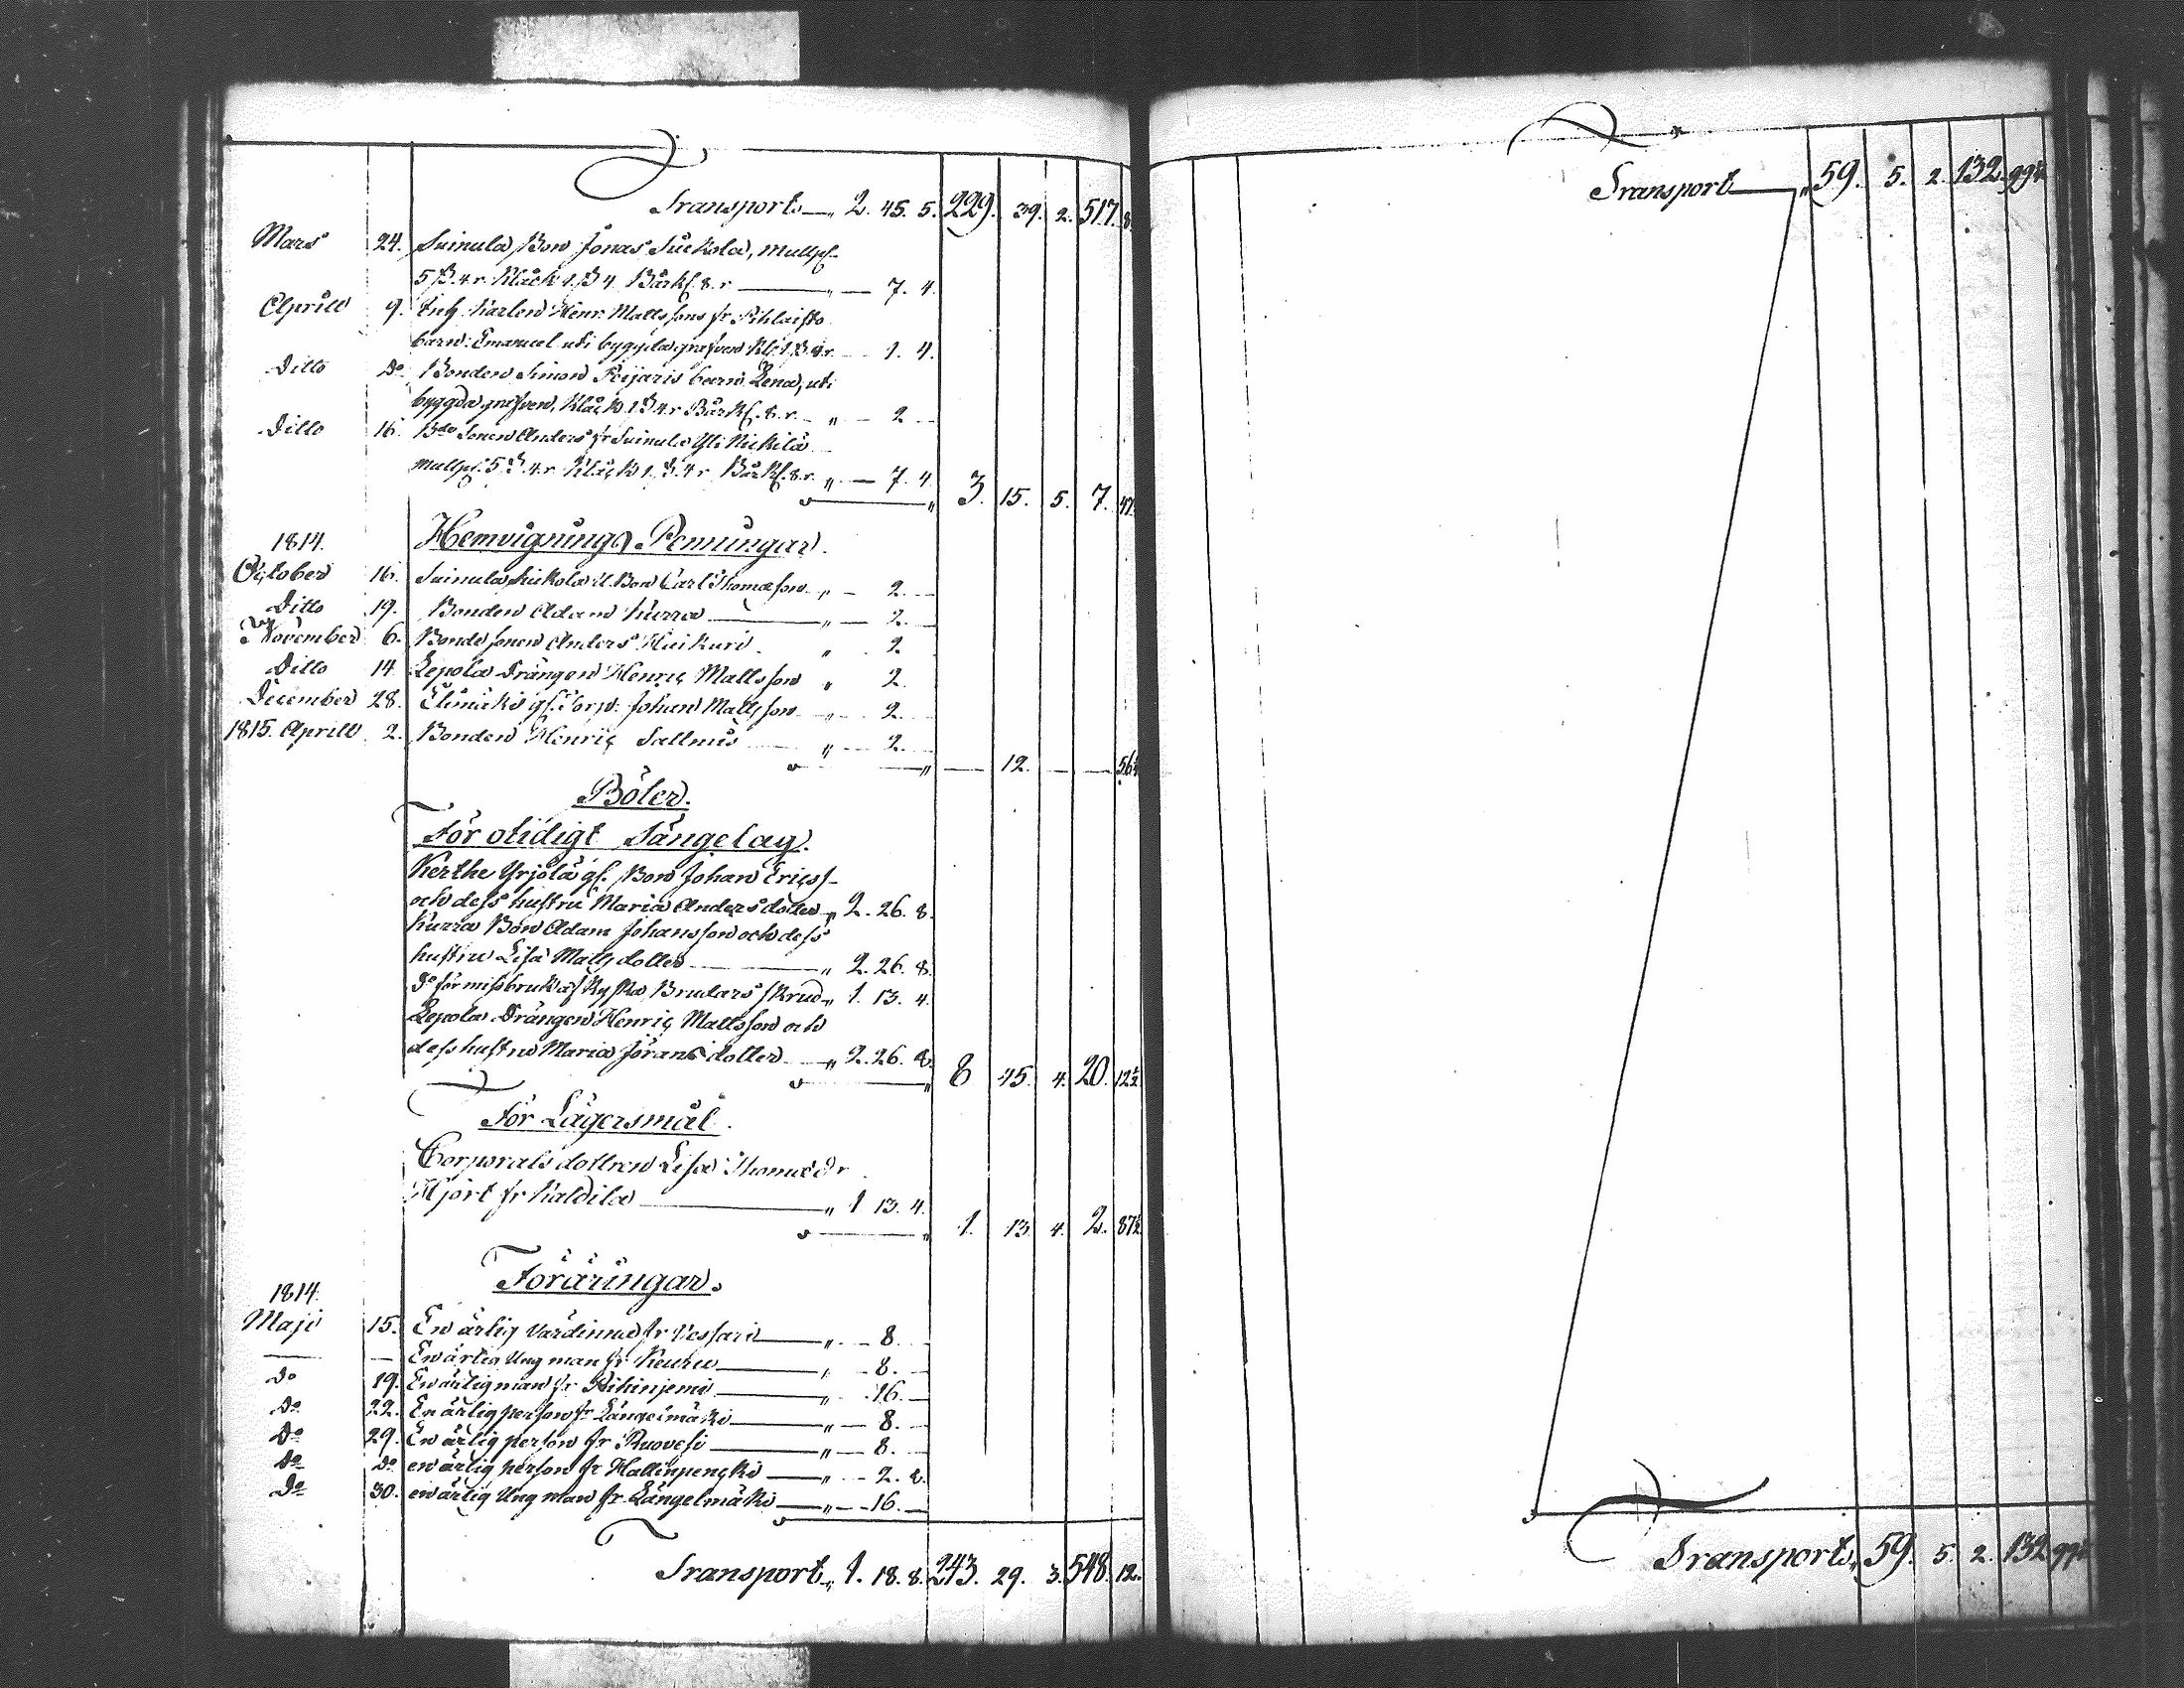 Transport „ 2. 45. 5. 229. 39. 2. 517. 8
Mars 24. Suinula Bon Jonas Suckola, mullpl.
5 R. 4 r. Kläck 1. R 4. Bårkl. 8. r „ — 7. 4.
Aprill 9. Enk. Karlen Henr. Mattssons fr Pihlaisto
barn: Emanuel uti byggda grafven Kl. 1. R. 4 r. — 1. 4.
Ditto Do Bonden Simon Peijaris barn Lena, uti
byggda grafven, Kläck 1 R 4. r Bårkl. 8. r. „ — 2 —
Ditto 16. Bde Sonen Anders fr Suinula Yli Nickilä
mullpl. 5 R. 4. r Kläck 1. R. 4 r Bårkl. 8. r. „ — 7. 4. 3. 15. 5. 7. 47.
1814. Hemvignings Penningar.
October 16. Suinula Suckola Bon Carl Thomasson „ — 2. —
Ditto 19. Bonden Adam Kurra „ — 2. —
November 6. Bonde sonen Anders Huikuri „ 2
Ditto 14. Lepola Drängen Henric Mattsson „ 2.
December 28. Torp. Johan Mattsson „ 2.
1815. Aprill 2. Bonden Henric Sallnus „ — 2. —
„ — 12. — — 56
Böter.
För otidigt Sängelag.
Kerthe Yrjölä gl. Bon Johan Ericss.
och dess hustru Maria Andersdotter „ 2. 26. 8.
Kurra Bon Adam Johansson och dess
hustru Lisa Matsdotter „ 2. 26. 8.
Do för missbruk af Kyska Brudars skrud „ 1. 13. 4.
Lepola Drängen Henric Mattsson och
dess hustru Maria Jöransdotter „ 2. 26. 8. 8 45. 4. 20. 12½
För Lägersmål.
Corporals dottren Lisa Thomædr
Hjort fr Kaldila „ 1 13. 4.
„ 1. 13. 4. 2. 87½
Föräringar.
1814.
Maji 15. En ärlig Värdinna fr Vessari „ — 8. —
— — En ärlig Ung man fr Keuru „ 8. —
Do 19. En ärlig man fr Rihinjemi „ 16. —
Do 22. En ärlig person fr Längelmäki „ — 8. —
Do 29. En ärlig person fr Ruovesi „ — 8. —
Do Do en ärlig person fr Hallinpencki „ — 2. 8.
Do 30. en ärlig Ung man fr Längelmäki „ — 16. —
Transport „ 1. 18. 8. 243. 29. 3. 548. 12.
Transport „ 59. 5. 2. 132. 99½
Transport „ 59. 5. 2. 132. 99½